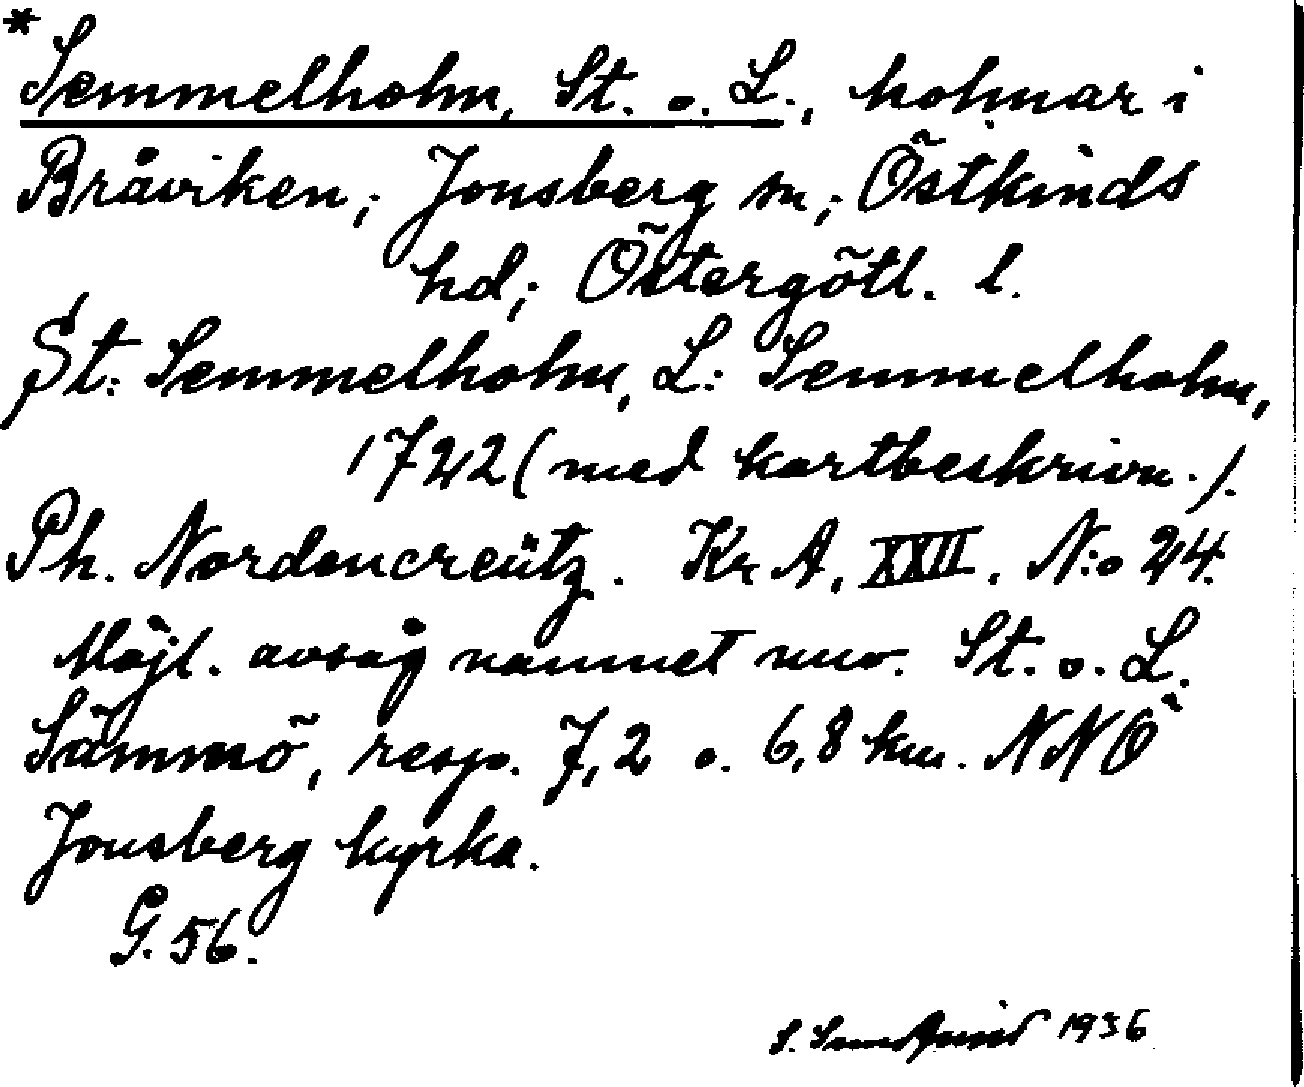 *
Semmelholm, St. o. L., holmar i
Bråviken; Jonsberg sn; Östkinds
hd; Östergötl. l.
St: Semmelholm, L: Semmelholm,
1722 (med kartbeskrivn.).
Ph. Nordencreütz. Kr A, XXII. N:o 24.
Möjl. avsåg namnet nuv. St. o. L.
Sämmö, resp. 7,2 o. 6,8 km. NNO
Jonsberg kyrka.
G. 56.
S. 1936